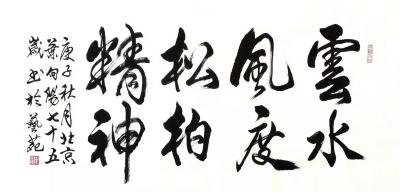 雲水
風度
松柏
精神
庚子秋月北京
蕭向陽七十五
歲書於藝苑